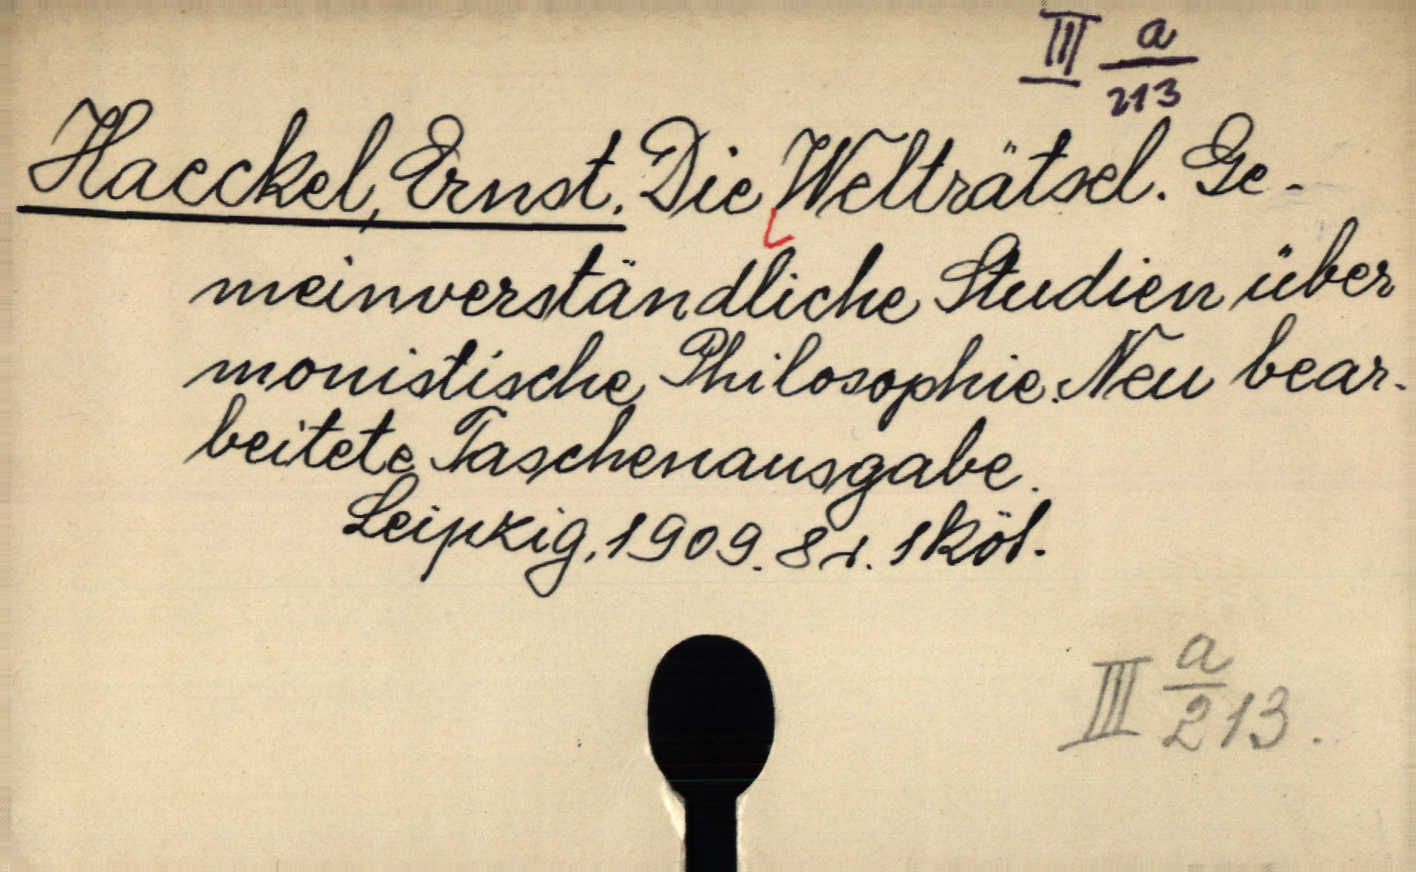 III a/213
Haeckel, Ernst. Die Welträtsel. Ge-
meinverständliche Studien über
monistische Philosophie. Neu bear-
beitete Taschenausgabe.
Leipzig, 1909. 8r. 1 köt.
III a/213.